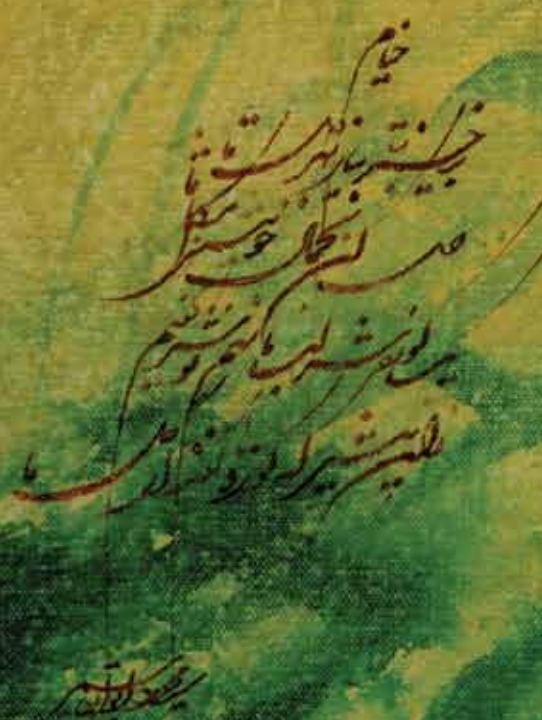 خیام
برخیز بتا بیا ز بهر دل ما
حل کن به جمال خویشتن مشکل ما
یک کوزه شراب تا بهم نوش کنیم
زان پیش که کوزه‌ها کنند از گل ما